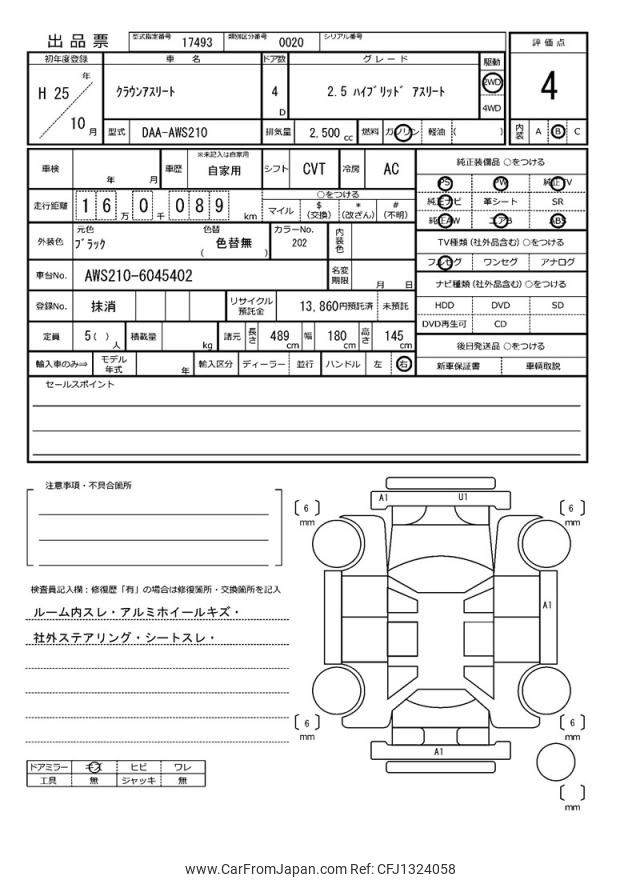 出品票 型式指定番号 17493 類別区分番号 0020 シリアル番号
評価点
4
初年度登録 車名 ドア数 グレード 駆動
H 25 年 10 月
クラウンアスリート 4 D 2.5 ハイブリッド アスリート 2WD 4WD
型式 DAA-AWS210 排気量 2,500 cc 燃料 ガソリン 軽油 ( )
内装 A B C
車検 年 月 車歴 ※未記入は自家用 自家用 シフト CVT 冷房 AC
走行距離 16万0千089 km
○をつける
マイル $(交換) *(改ざん) #(不明)
外装色 元色 ブラック 色替 ( 色替無 ) カラーNo. 202 内装色
車台No. AWS210-6045402 名変期限 月 日
登録No. 抹消 リサイクル預託金 13,860円預託済 未預託
定員 5( )人 積載量 kg 諸元 長さ 489cm 幅 180cm 高さ 145cm
輸入車のみ⇒ モデル年式 年 輸入区分 ディーラー 並行 ハンドル 左 右
純正装備品 ○をつける
PS PW 純正TV
純正ナビ 革シート SR
純正AW エアB ABS
TV種類(社外品含む)○をつける
フルセグ ワンセグ アナログ
ナビ種類(社外品含む)○をつける
HDD DVD SD
DVD再生可 CD
後日発送品 ○をつける
新車保証書 車輌取説
セールスポイント
注意事項・不具合箇所
検査員記入欄:修復歴「有」の場合は修復箇所・交換箇所を記入
ルーム内スレ・アルミホイールキズ・
社外ステアリング・シートスレ・
ドアミラー キズ ヒビ ワレ
工具 無 ジャッキ 無
A1 U1
[ 6 ] mm
[ 6 ] mm
A1
[ 6 ] mm
[ 6 ] mm
A1
[ ] mm
www.CarFromJapan.com Ref: CFJ1324058